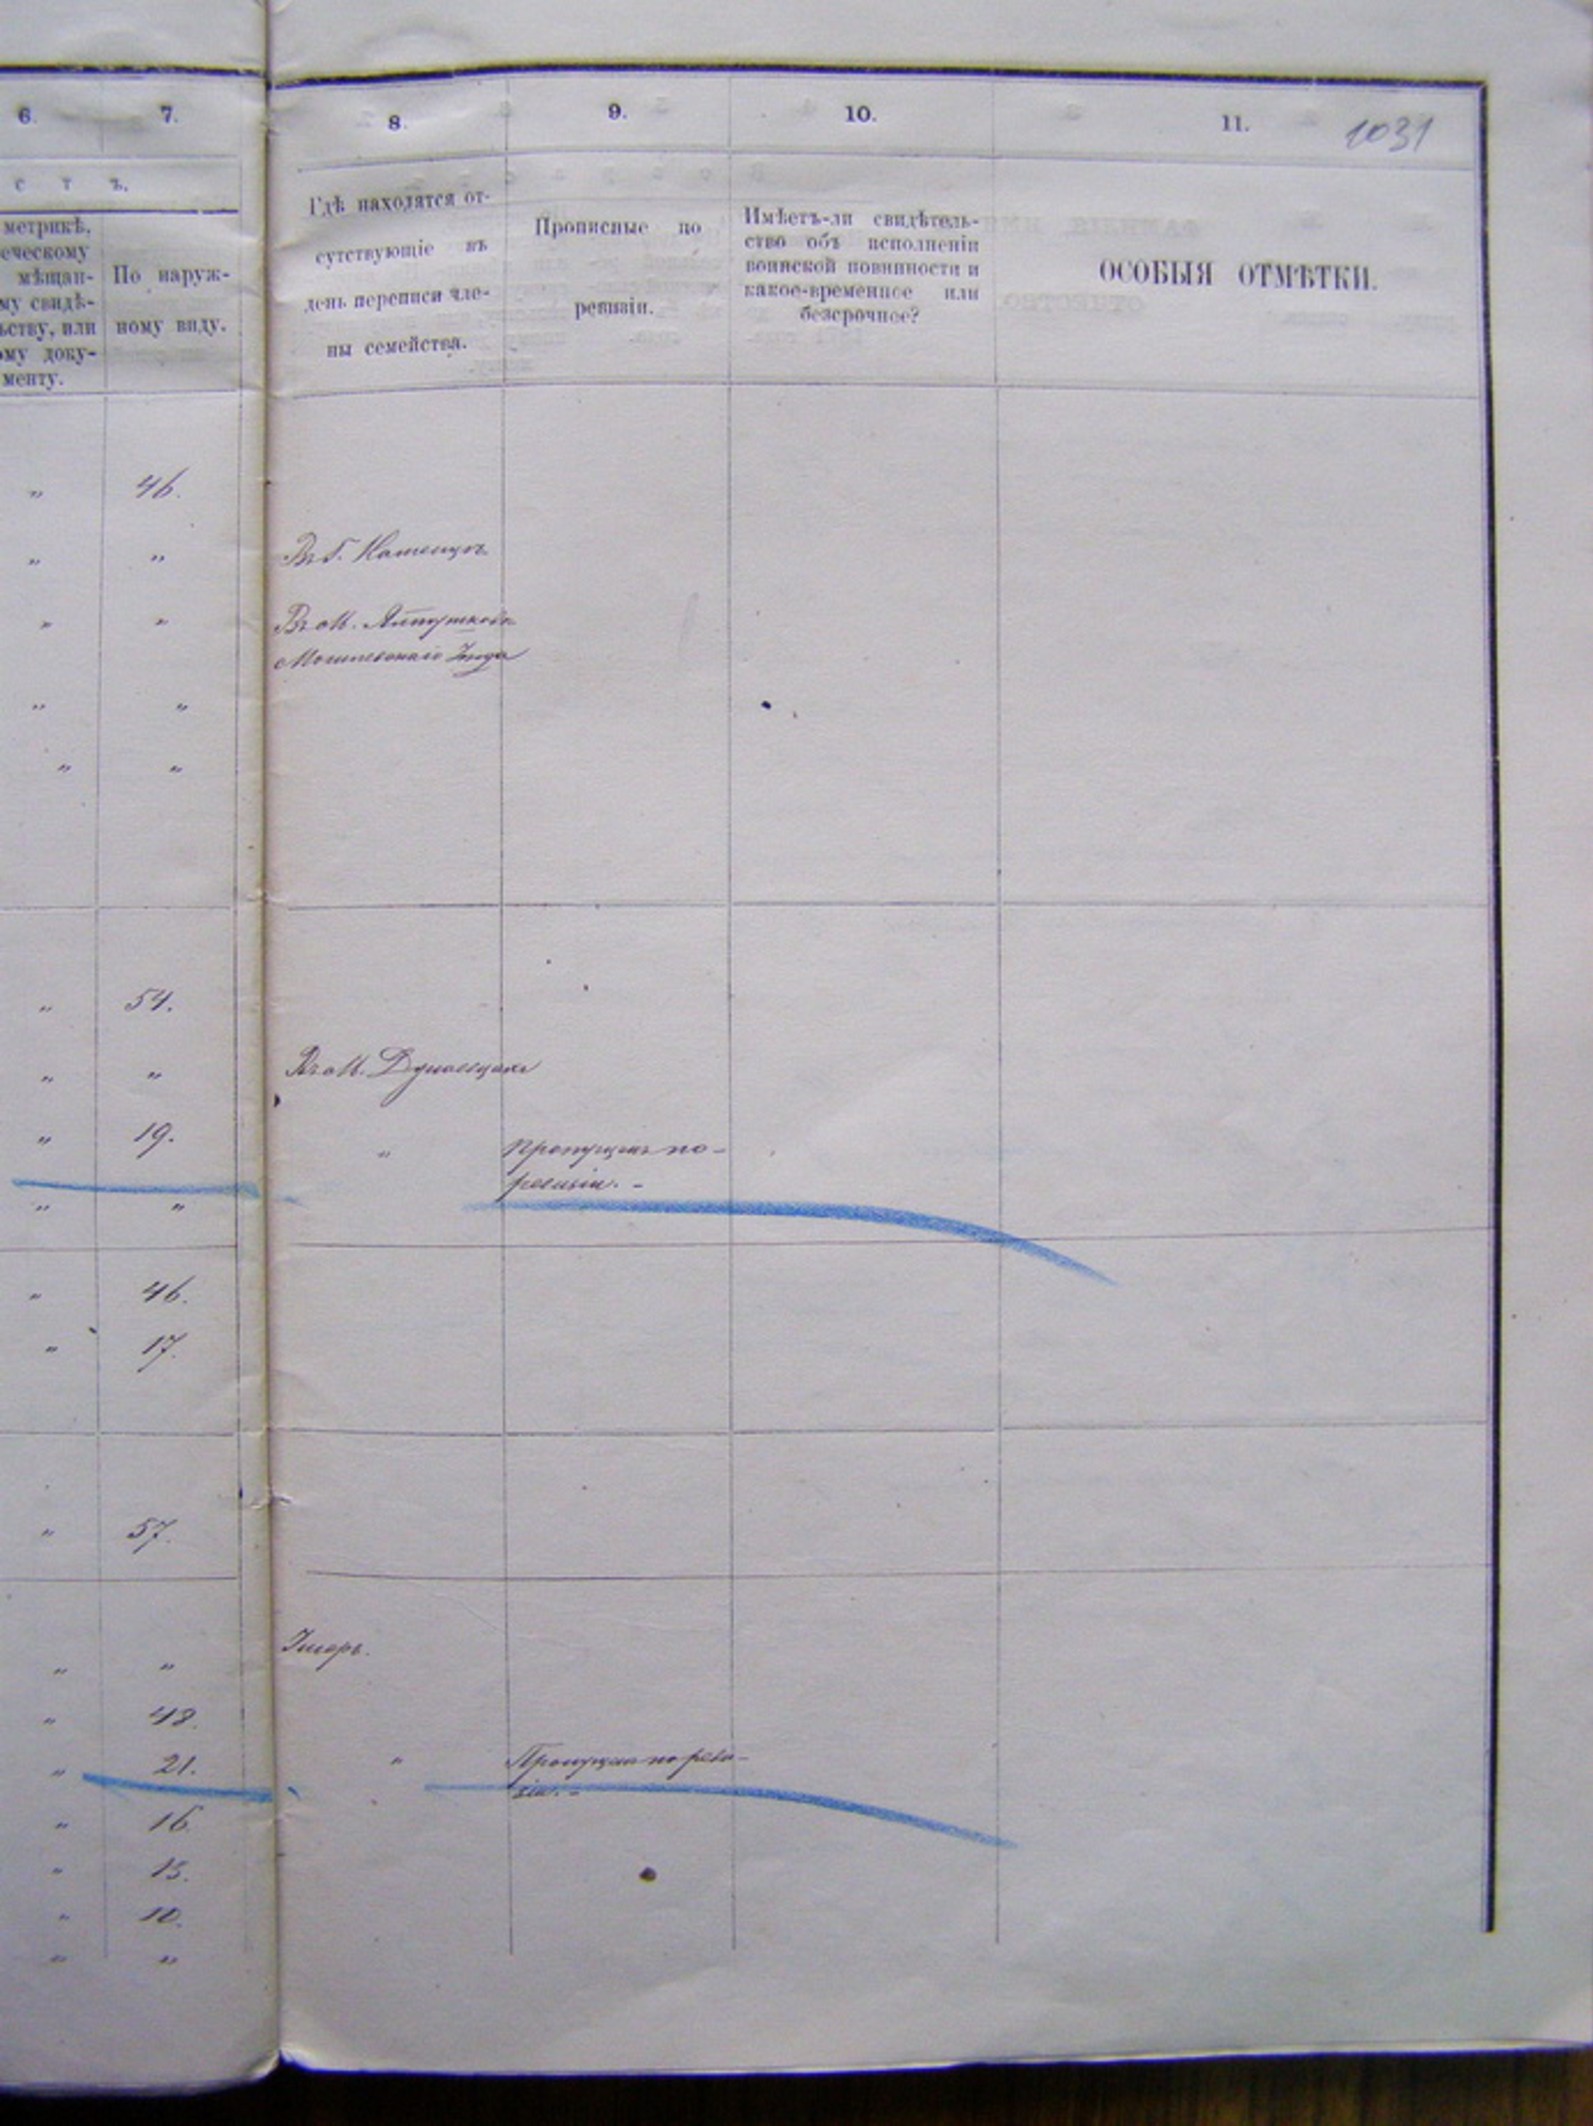 6. 7. 8. 9. 10. 11. 1031
с т ъ.
метрикѣ,
еческому
мѣщан-
му свидѣ-
ьству, или
ому доку-
менту.
По наруж-
ному виду.
Гдѣ находятся от-
сутствующіе въ
день переписи чле-
ны семейства.
Прописные по
ревизіи.
Имѣетъ-ли свидѣтель-
ство объ исполненіи
воинской повинности и
какое-временное или
безсрочное?
ОСОБЫЯ ОТМѢТКИ.
„ 46.
„ „ Въ Г. Каменцѣ
„ „ Въ М.
„ „
„ „
„ 54.
„ „ Въ М. Дунаевцахъ
„ 19. „ Пропущенъ по-
ревизіи. -
„ „
„ 46.
„ 17.
„ 57.
„ „ Умеръ.
„ 48.
„ 21. „ Пропущенъ по реви-
зіи. -
„ 16.
„ 15.
„ 10.
„ „